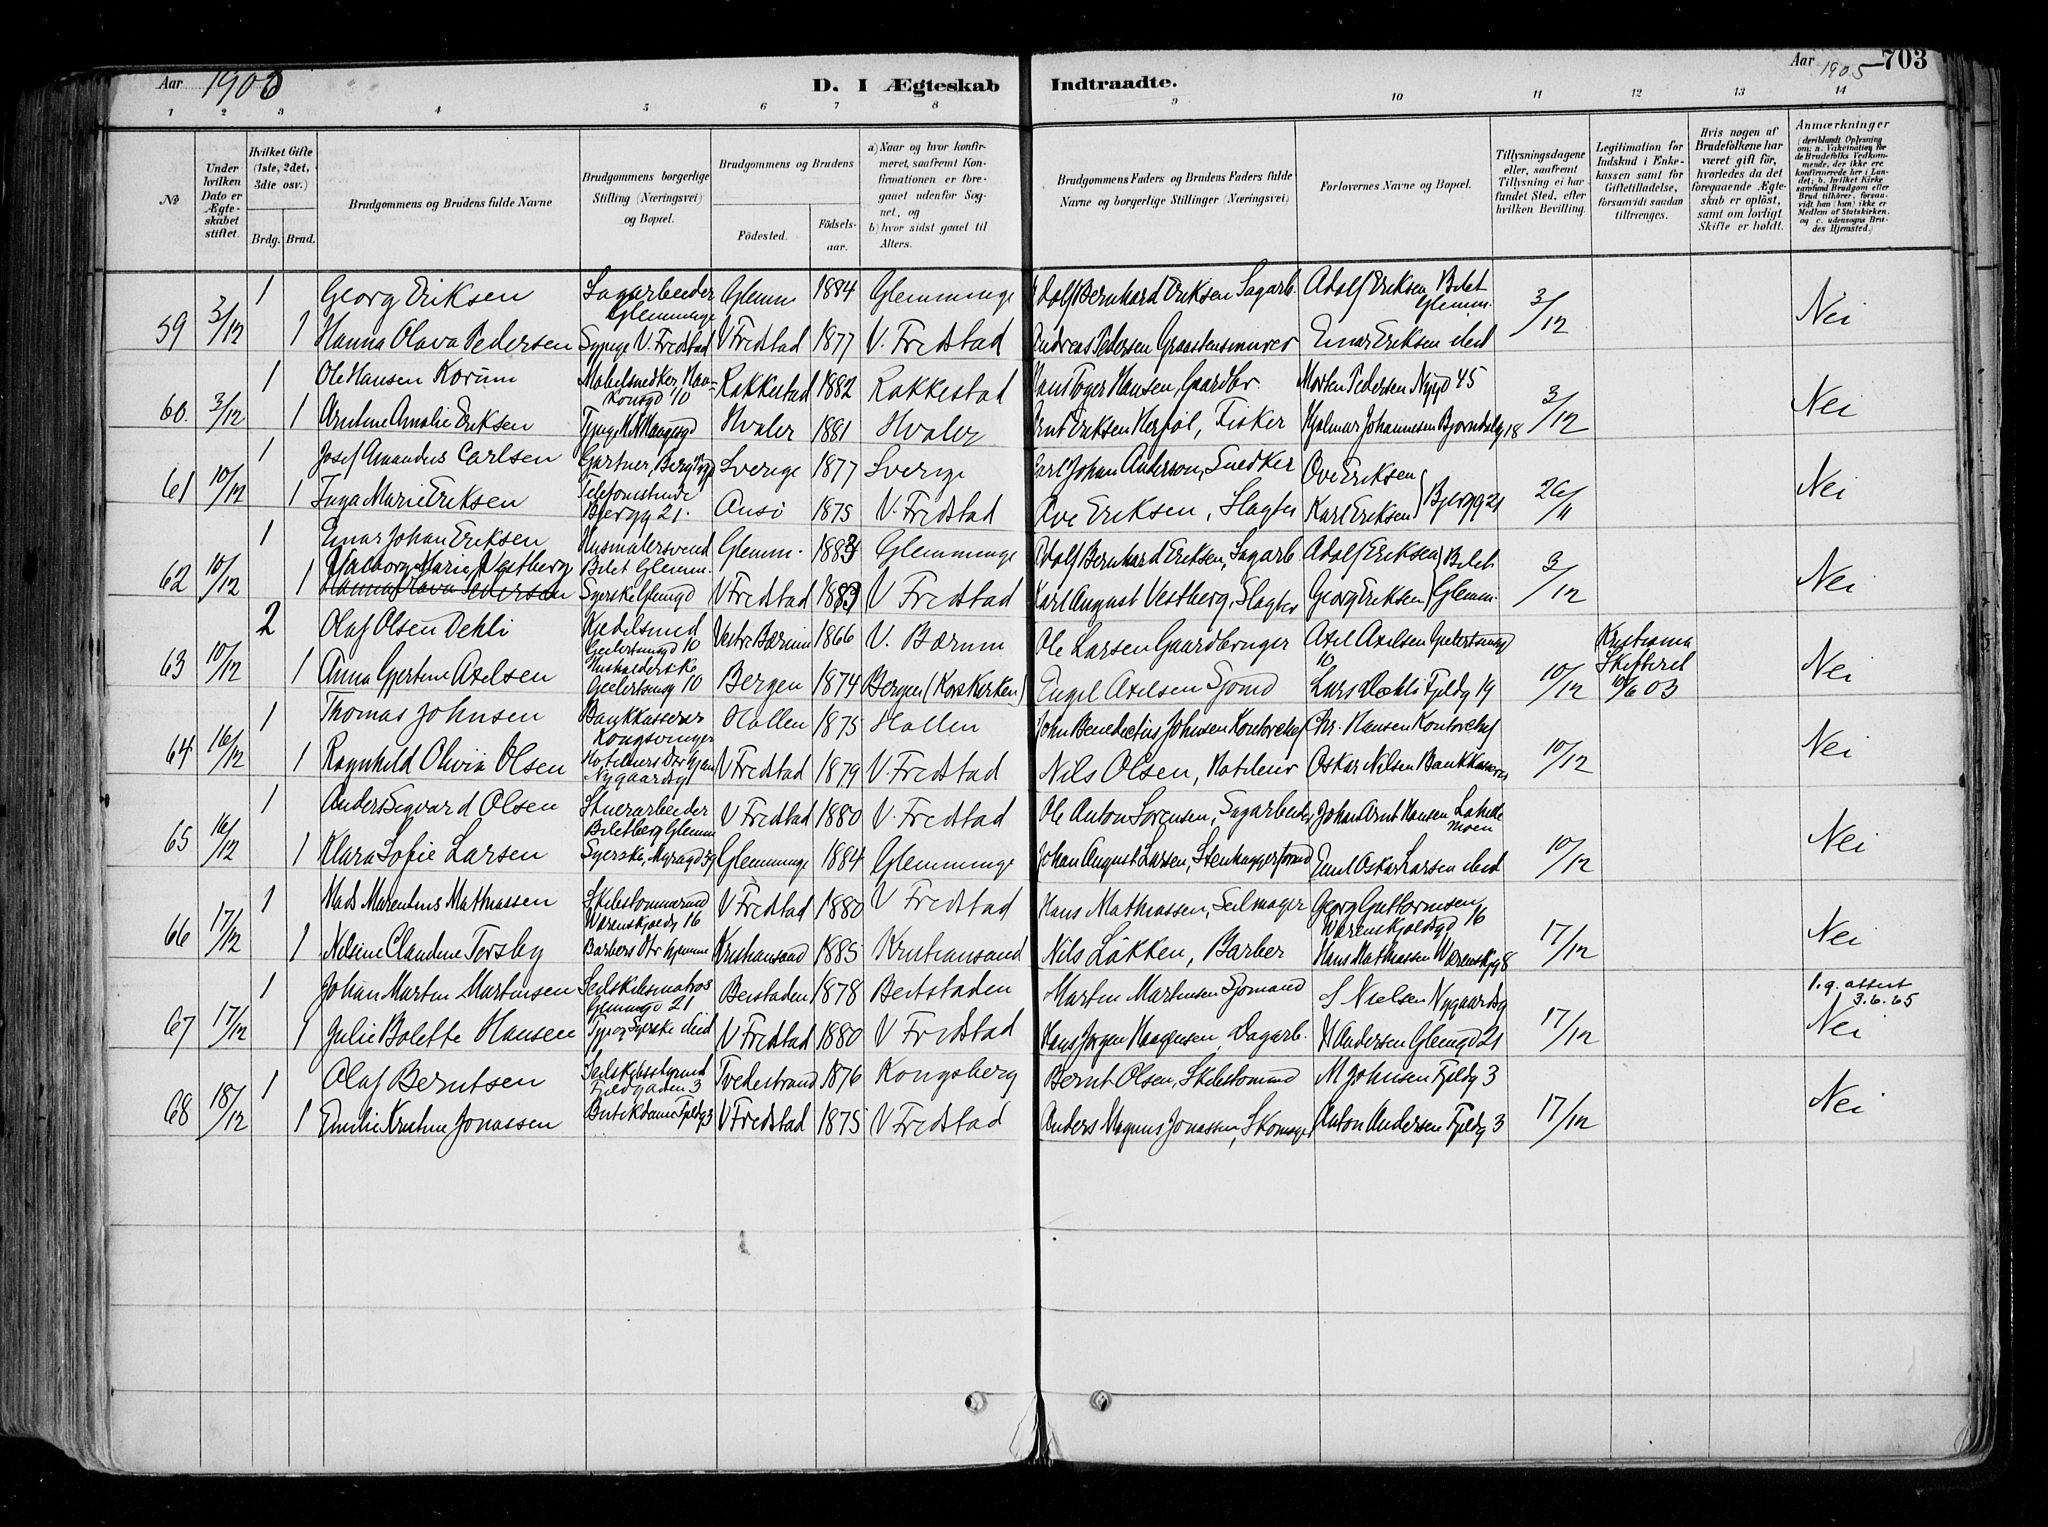 Aar 1905 D. I Ægteskab Indtraadte. Aar 1905 703
1 2 3 4 5 6 7 8 9 10 11 12 13 14
No
Under hvilken Dato er Ægteskabet stiftet.
Hvilket Gifte (1ste, 2det, 3die osv.)
Brdg. Brud.
Brudgommens og Brudens fulde Navne
Brudgommens borgerlige Stilling (Næringsvei) og Bopæl.
Brudgommens og Brudens
Fødested. Fødselsaar.
a) Naar og hvor konfirmeret, saafremt Konfirmationen er foregaaet udenfor Sognet, og
b) hvor sidst gaaet til Alters.
Brudgommens Faders og Brudens Faders fulde Navne og borgerlige Stillinger (Næringsvei)
Forlovernes Navne og Bopæl.
Tillysningsdagene eller, saafremt Tillysning ei har fundet Sted, efter hvilken Bevilling.
Legitimation for Indskud i Enkekassen samt for Giftetilladelse, forsaavidt saadan tiltrenges.
Hvis nogen af Brudefolkene har været gift før, hvorledes da det foregaaende Ægteskab er opløst, samt om lovligt Skifte er holdt.
Anmærkninger
(deriblandt Oplysning om: a. Vakcination for de Brudefolks Vedkommende, der ikke ere konfirmerede her i Landet; b. hvilket Kirkesamfund Brudgom eller Brud tilhører, forsaavidt han (hun) ikke er Medlem af Statskirken, og c. udensogns Brudes Hjemsted.)
59 3/12 1 Georg Eriksen Sagarbeider Glemminge Glemm. 1884 Glemminge Adolf Bernhard Eriksen Sagarb. Adolf Eriksen Bilet Glemm. 3/12 Nei
1 Hanna Olava Pedersen Sypige V. Fredstad V Fredstad 1877 V. Fredstad Andreas Pedersen Graastensmurer Einar Eriksen ibid
60. 3/12 1 Ole Hansen Korum Møbelsnedker, Haakonsgd 10 Rakkestad 1882 Rakkestad Hans Toger Hansen, Gaardbr. Morten Pedersen Nygd 45 3/12 Nei
1 Arntine Amalie Eriksen Hvaler 1881 Hvaler Arnt Eriksen Herføl, Fisker Hjalmar Johannesen Bjørndalsg 18
61 10/12 1 Josef Amandus Carlsen Gartner, Sverige 1877 Sverige Carl Johan Anderson, Snedker Ove Eriksen 26/11 Nei
1 Inga Marie Eriksen Telefonistinde Bjergg 21. Onsø 1875 V. Fredstad Ove Eriksen, Slagter Karl Eriksen Bjergg 21
62 10/12 1 Einar Johan Eriksen Husmalersvend Bilet Glemm. Glemm. 1883 Glemminge Adolf Bernhard Eriksen, Sagarb. Adolf Eriksen Bilet 3/12 Nei
1 Valborg Marie Vestberg Hanna Olava Pedersen Syerske Glemgd V Fredstad 1883 V Fredstad Karl August Vestberg, Slagter Georg Eriksen Glemm.
63 10/12 2 Olaf Olsen Dehli Kjedelsmed Geelertsensgd 10 Vestre Bærum 1866 V. Bærum Ole Larsen Gaardbruger Axel Axelsen Geelertsensgd 10 10/12 Kristiania Skifteret 10/6 03 Nei
1 Anna Gjertine Axelsen Husholderske Geelertsensg 10 Bergen 1874 Bergen (Korskirken) Engel Axelsen Sjømd Lars Dæhli Fjeldg 19
64 16/12 1 Thomas Johnsen Bankkasserer Kongsvinger Hollen 1875 Hollen John Benedictus Johnsen Kontorchef Chr. Hansen Kontorchef 10/12 Nei
1 Ragnhild Olivia Olsen Hoteleiers Dtr Hjem Nygaardsgt V Fredstad 1879 V. Fredstad Nils Olsen, Hoteleier Oskar Nilsen Bankkasserer
65 16/12 1 Anders Sigvard Olsen Stuerarbeider Biletberg Glemm V Fredstad 1880 V. Fredstad Ole Anton Sørensen, Sagarbeider Johan Arnt Hansen Lahellemoen 10/12 Nei
1 Klara Sofie Larsen Syerske, Glemminge 1884 Glemminge Johan August Larsen, Stenhuggerformd Emil Oskar Larsen ibid
66 17/12 1 Mads Marentius Mathiassen Skibstømmermd Wærenskjoldsg 16 V Fredstad 1880 V Fredstad Hans Mathiassen, Seilmager Georg Guttormsen Wærenskjoldsgd 16 17/12 Nei
1 Nilsine Claudine Torsby Barbers Dtr hjemme Kristiansand 1885 Kristiansand Nils Løkken, Barber Hans Mathiassen Wærenskjg 8
67 17/12 1 Johan Martin Martinsen Seilskibsmatros Glemmgd 21 Beitstaden 1878 Beitstaden Martin Martinsen Sjømand S Nielsen Nygaardsg 17/12 1. g. attest 3.6.65 Nei
1 Julie Bolette Hansen Syerske ibid V Fredstad 1880 V Fredstad Hans Jørgen Haagensen Dagarb. H Andersen Glemgd 21
68 18/12 1 Olaf Berntsen Seilskibsstyrmd Fjeldgaden 3 Tvedestrand 1876 Kongsberg Bernt Olsen, Skibstømmd M Johnsen Fjeldg 3 17/12 Nei
1 Emilie Kristine Jonassen Butikdame Fjeldg 3 V Fredstad 1875 V Fredstad Anders Magnus Jonassen, Skomager Anton Andersen Fjeldg 3